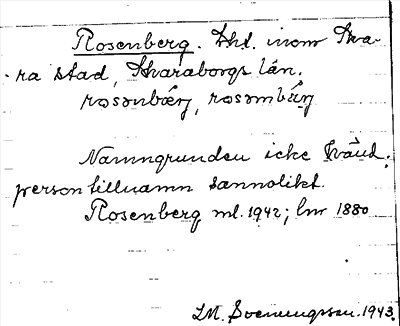 Rosenberg. Lht. inom Ska-
ra stad, Skaraborgs län.
rosɷnbærj, rosɷmbærj
Namngrunden icke känd;
persontillnamn sannolikt.
Rosenberg ml. 1942; lm 1880
1943.